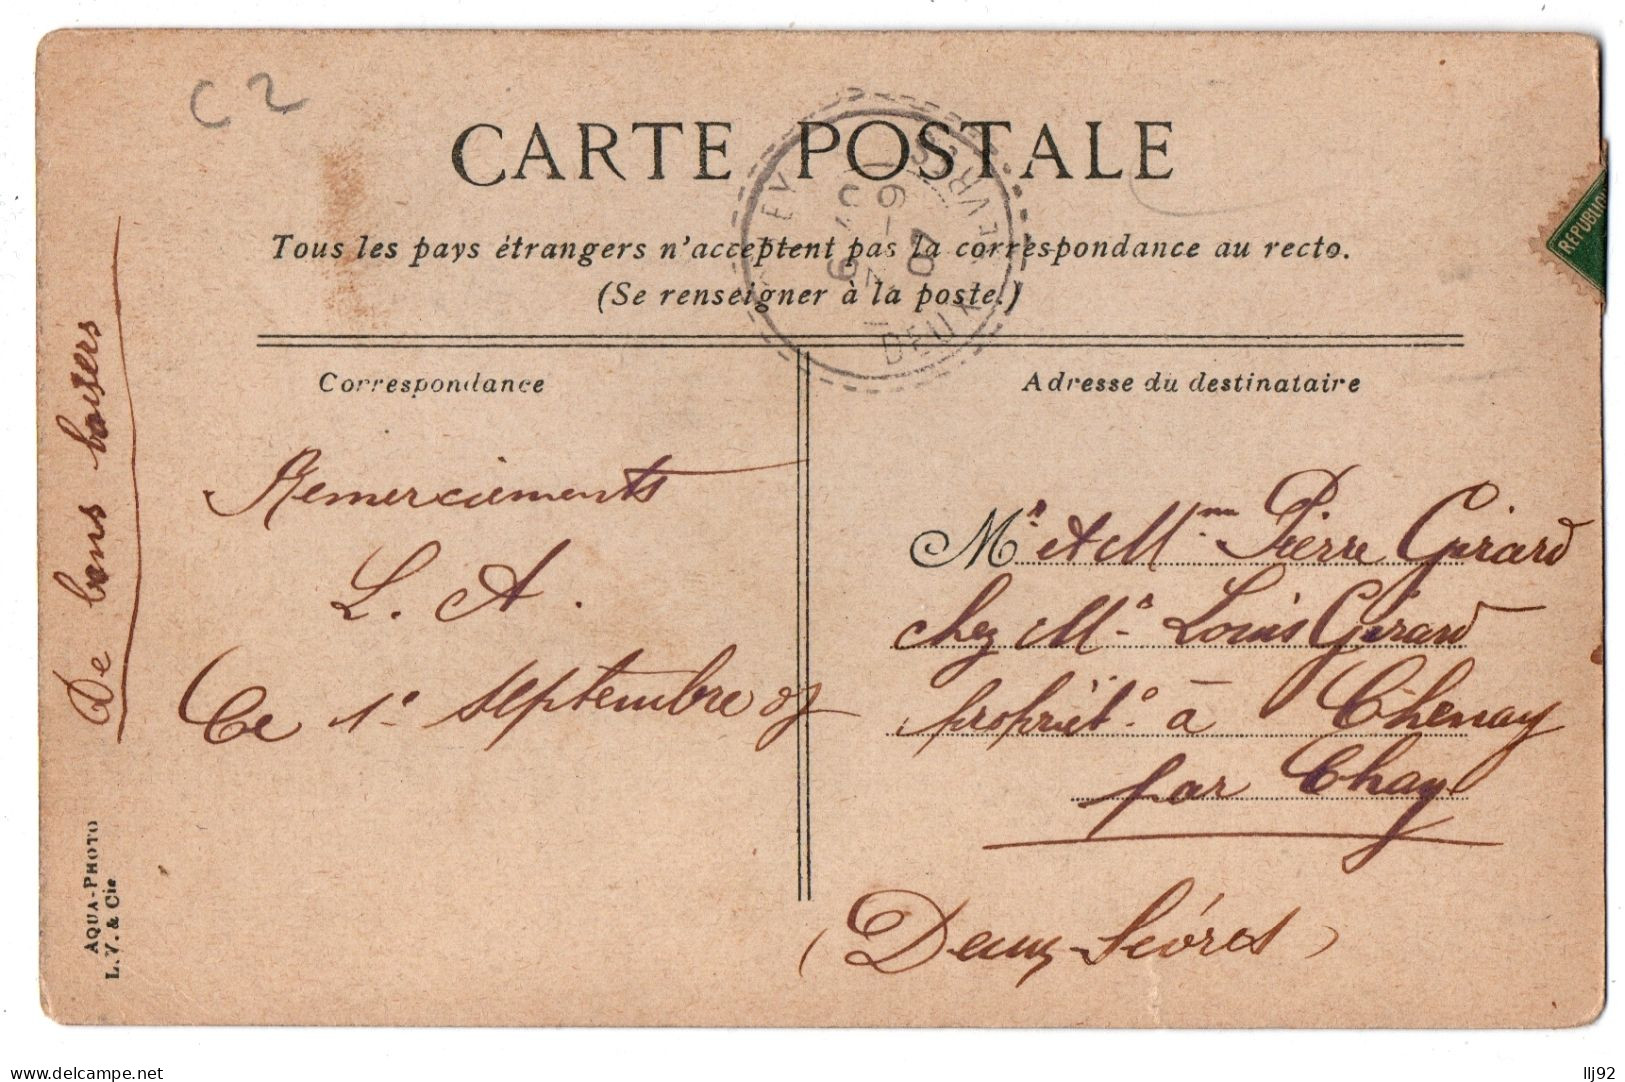 C 2
CARTE POSTALE
Tous les pays étrangers n'acceptent pas la correspondance au recto.
(Se renseigner à la poste.)
DEUX SEVRES
REPUBLIQU
Correspondance
Remerciements
L. A.
Ce 1e septembre 07
De bons baisers
AQUA-PHOTO
L. V. & Cie
Adresse du destinataire
Mr et Mme Pierre Girard
chez Mr Louis Girard
propriét. à Chenay
par Chay
(Deux-Sèvres)
delcampe.net
llj92